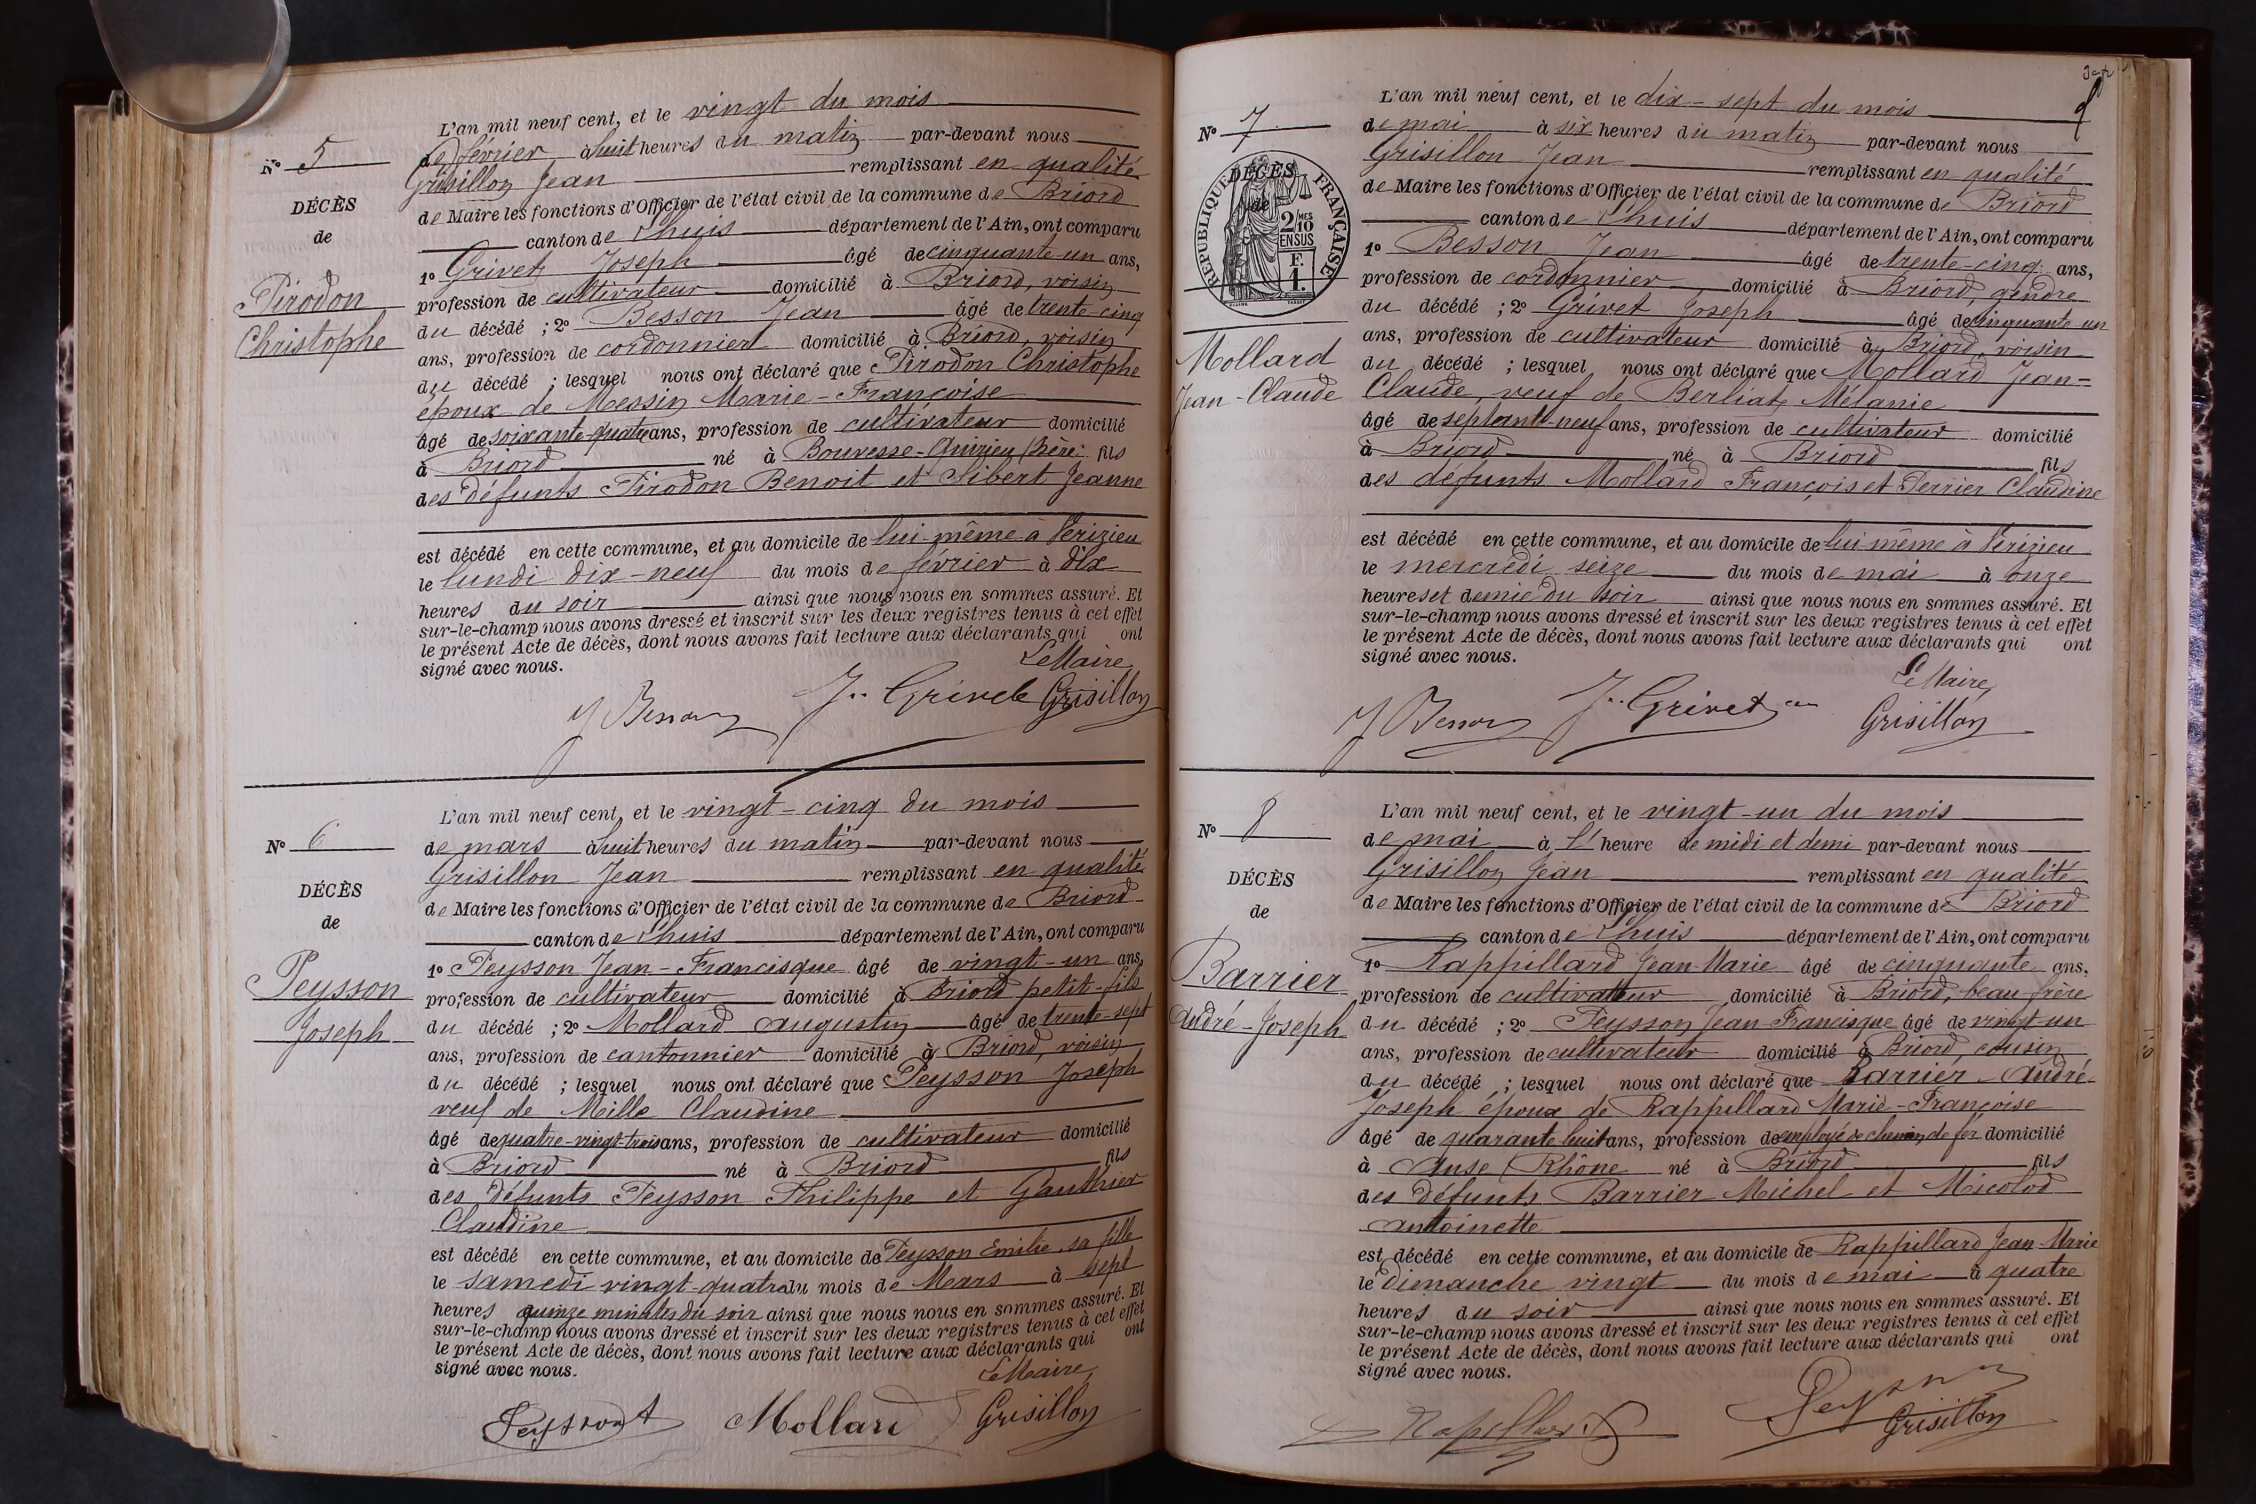 N° 5
DÉCÈS
de
Pirodon
Christophe
L'an mil neuf cent, et le vingt du mois
de février à huit heures du matin par-devant nous
Grisillon Jean remplissant en qualité
de Maire les fonctions d'Officier de l'état civil de la commune de Briord
canton de Lhuis département de l'Ain, ont comparu
1° Grivet Joseph âgé de cinquante-un ans,
profession de cultivateur domicilié à Briord, voisin
du décédé ; 2° Besson Jean âgé de trente-cinq
ans, profession de cordonnier domicilié à Briord, voisin
du décédé ; lesquel nous ont déclaré que Pirodon Christophe
époux de Messin Marie-Françoise
âgé de soixante-quatre ans, profession de cultivateur domicilié
à Briord né à Bouvesse-Quirieu (Isère) fils
des défunts Pirodon Benoit et Sibert Jeanne
est décédé en cette commune, et au domicile de lui-même à Vérizieu
le lundi dix-neuf du mois de février à dix
heures du soir ainsi que nous nous en sommes assuré. Et
sur-le-champ nous avons dressé et inscrit sur les deux registres tenus à cet effet
le présent Acte de décès, dont nous avons fait lecture aux déclarants qui ont
signé avec nous.
Le Maire
J Besson J. Grivet Grisillon
N° 6
DÉCÈS
de
Peysson
Joseph
L'an mil neuf cent, et le vingt-cinq du mois
de mars à huit heures du matin par-devant nous
Grisillon Jean remplissant en qualité
de Maire les fonctions d'Officier de l'état civil de la commune de Briord
canton de Lhuis département de l'Ain, ont comparu
1° Peysson Jean-Francisque âgé de vingt-un ans,
profession de cultivateur domicilié à Briord petit-fils
du décédé ; 2° Mollard Augustin âgé de trente-sept
ans, profession de cantonnier domicilié à Briord, voisin
du décédé ; lesquel nous ont déclaré que Peysson Joseph
veuf de Mille Claudine
âgé de quatre-vingt-trois ans, profession de cultivateur domicilié
à Briord né à Briord fils
des défunts Peysson Philippe et Gauthier
Claudine
est décédé en cette commune, et au domicile de Peysson Emilie, sa fille
le samedi vingt-quatre du mois de Mars à sept
heures quinze minutes du soir ainsi que nous nous en sommes assuré. Et
sur-le-champ nous avons dressé et inscrit sur les deux registres tenus à cet effet
le présent Acte de décès, dont nous avons fait lecture aux déclarants qui ont
signé avec nous.
Le Maire
Peysson Mollard Grisillon
N° 7
DÉCÈS
de
RÉPUBLIQUE FRANÇAISE
2/10
EN SUS
F.
1.
Mollard
Jean-Claude
L'an mil neuf cent, et le dix-sept du mois
de mai à six heures du matin par-devant nous
Grisillon Jean remplissant en qualité
de Maire les fonctions d'Officier de l'état civil de la commune de Briord
canton de Lhuis département de l'Ain, ont comparu
1° Besson Jean âgé de trente-cinq ans,
profession de cordonnier domicilié à Briord, gendre
du décédé ; 2° Grivet Joseph âgé de cinquante un
ans, profession de cultivateur domicilié à Briord, voisin
du décédé ; lesquel nous ont déclaré que Mollard Jean-
Claude, veuf de Berliat Mélanie
âgé de septante-neuf ans, profession de cultivateur domicilié
à Briord né à Briord fils
des défunts Mollard François et Perrier Claudine
est décédé en cette commune, et au domicile de lui même à Vérizieu
le mercredi seize du mois de mai à onze
heures et demie du soir ainsi que nous nous en sommes assuré. Et
sur-le-champ nous avons dressé et inscrit sur les deux registres tenus à cet effet
le présent Acte de décès, dont nous avons fait lecture aux déclarants qui ont
signé avec nous.
Le Maire,
J Besson J. Grivet Grisillon
N° 8
DÉCÈS
de
Barrier
André-Joseph
L'an mil neuf cent, et le vingt-un du mois
de mai à l' heure de midi et demi par-devant nous
Grisillon Jean remplissant en qualité
de Maire les fonctions d'Officier de l'état civil de la commune de Briord
canton de Lhuis département de l'Ain, ont comparu
1° Rappillard Jean-Marie âgé de cinquante ans,
profession de cultivateur domicilié à Briord, beau frère
du décédé ; 2° Peysson Jean-Francisque âgé de vingt-un
ans, profession de cultivateur domicilié à Briord, cousin
du décédé ; lesquel nous ont déclaré que Barrier André-
Joseph époux de Rappillard Marie-Françoise
âgé de quarante huit ans, profession de employé de chemin de fer domicilié
à Anse (Rhône né à Briord fils
des défunts Barrier Michel et Micolod
Antoinette
est décédé en cette commune, et au domicile de Rappillard Jean-Marie
le dimanche vingt du mois de mai à quatre
heures du soir ainsi que nous nous en sommes assuré. Et
sur-le-champ nous avons dressé et inscrit sur les deux registres tenus à cet effet
le présent Acte de décès, dont nous avons fait lecture aux déclarants qui ont
signé avec nous.
Rapillard Peysson Grisillon